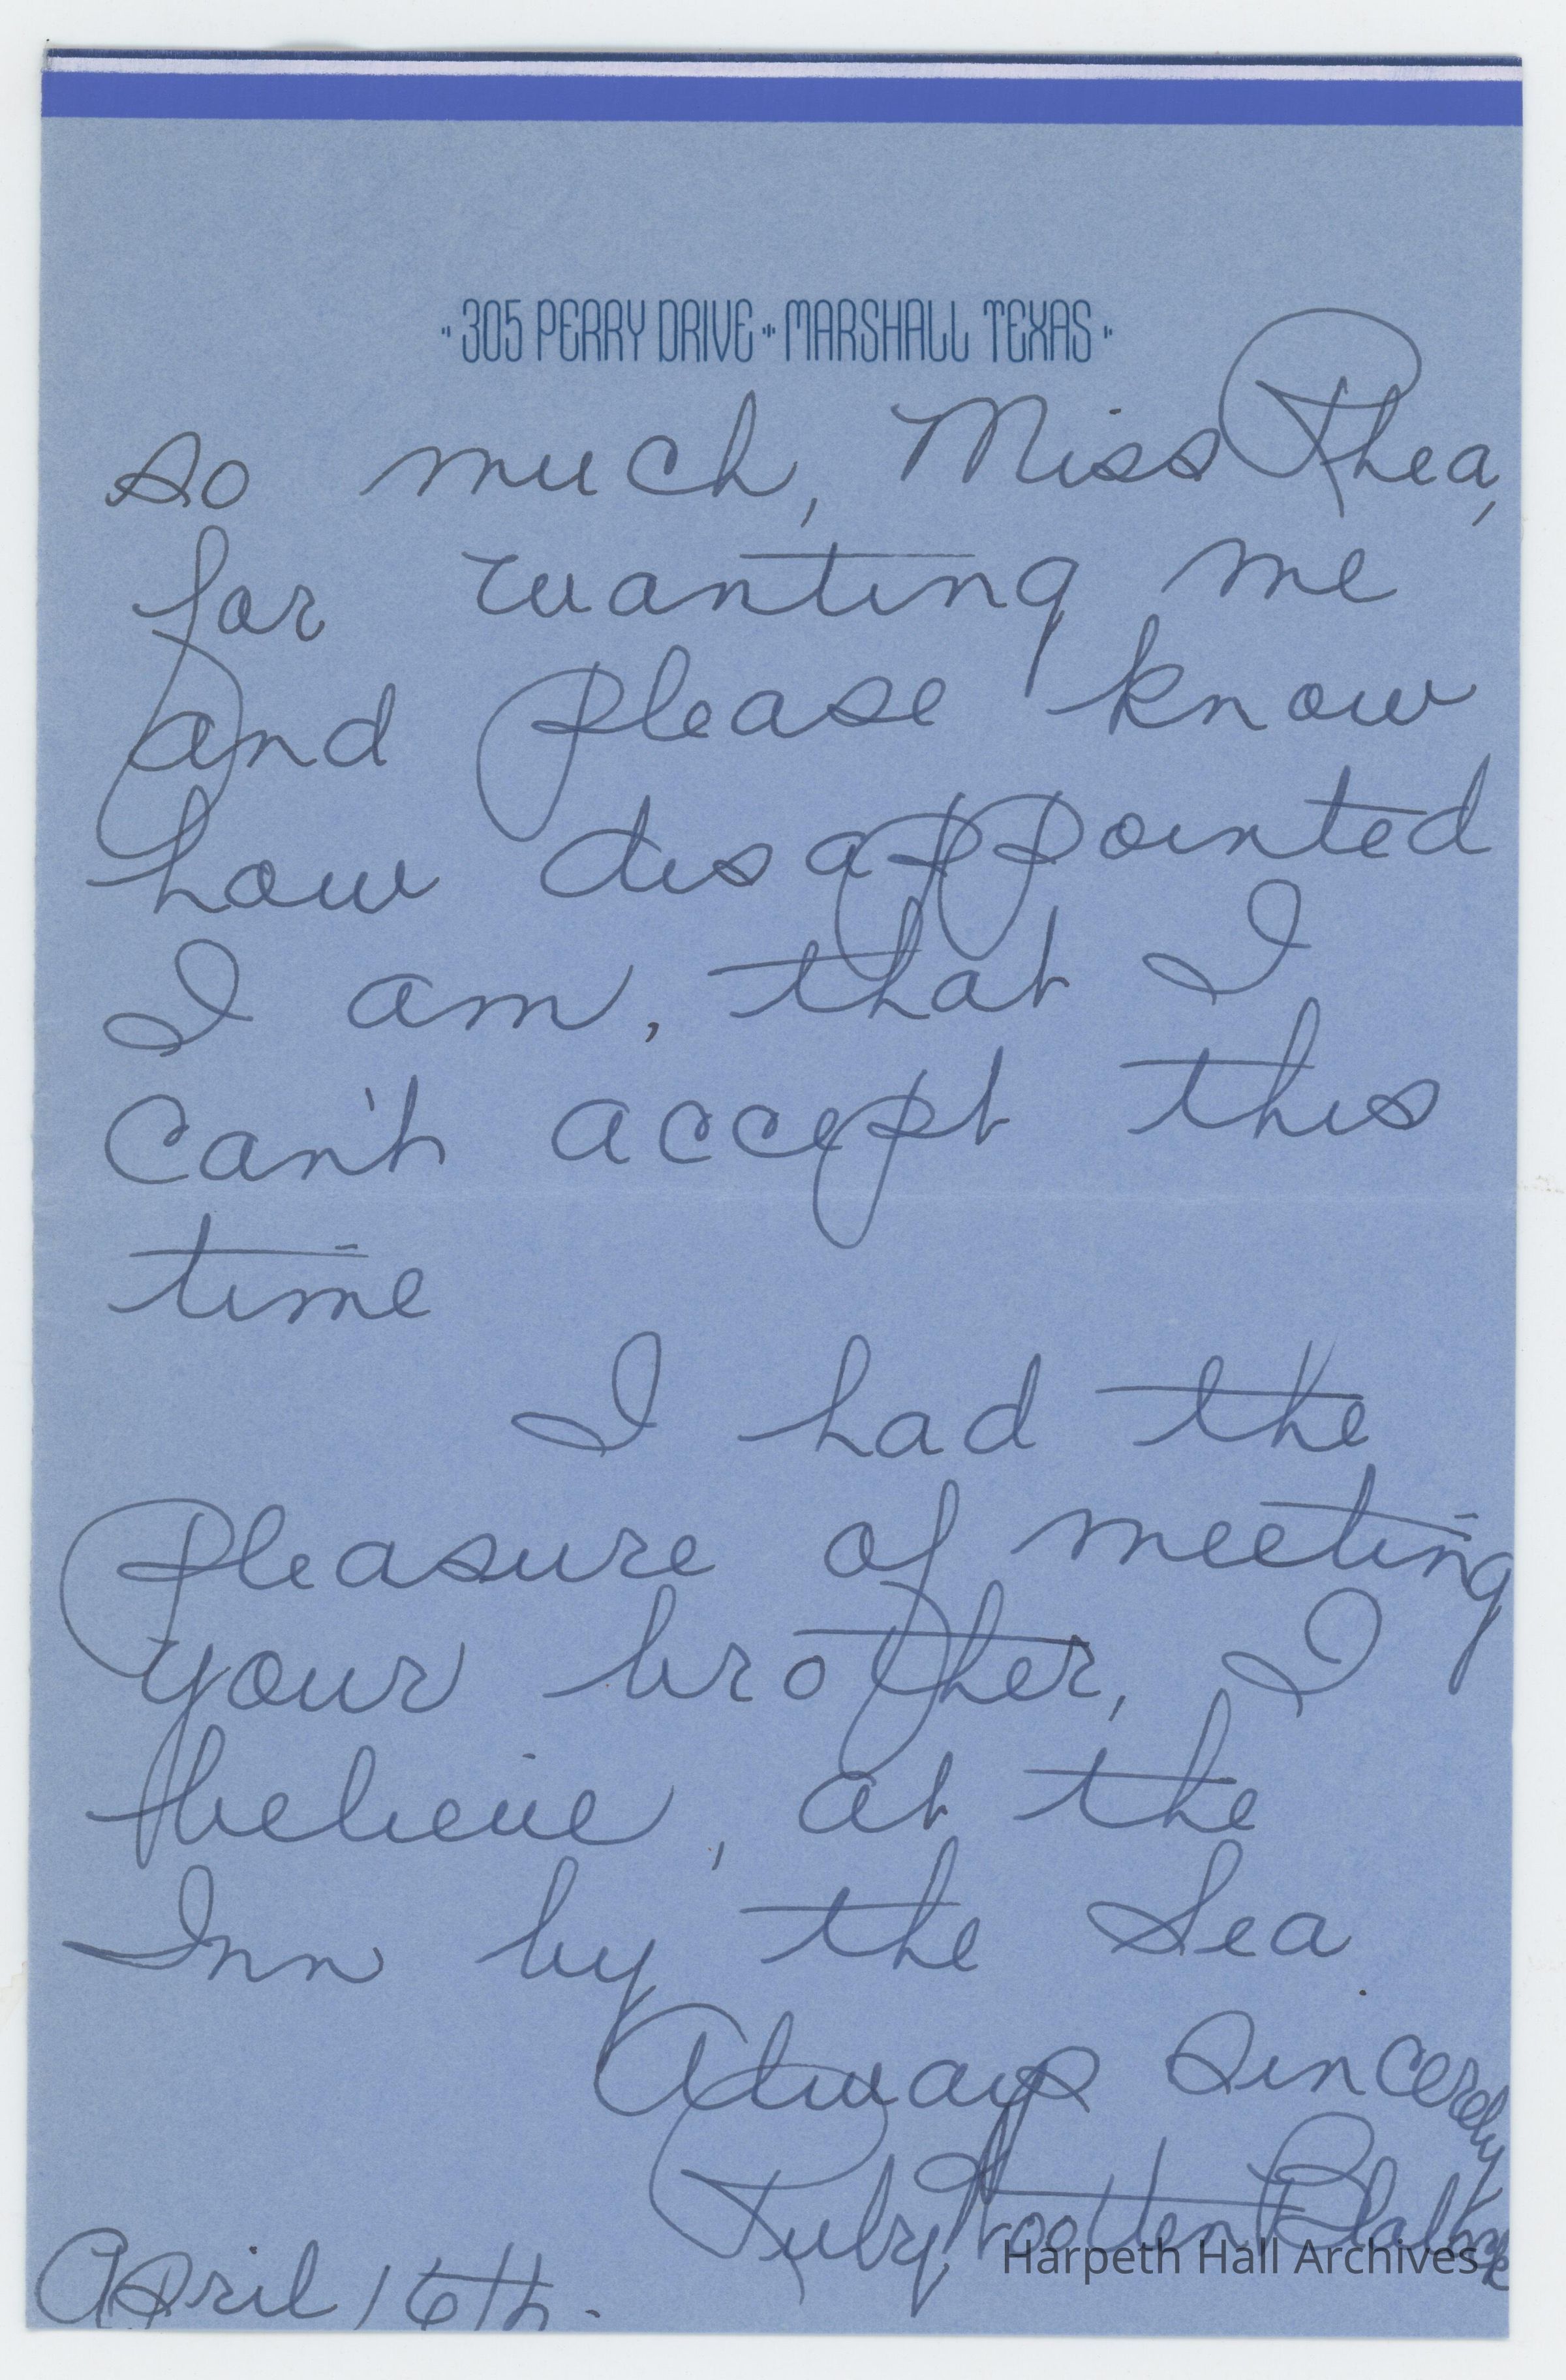 305 PERRY DRIVE MARSHALL TEXAS
so much, Miss Rhea,
for wanting me
and please know
how disappointed
I am, that I
can't accept this
time
I had the
pleasure of meeting
your brother, I
believe, at the
Inn by the Sea.
Always Sincerely
Ruby Wootten Blalock
April 16th.
Harpeth Hall Archives